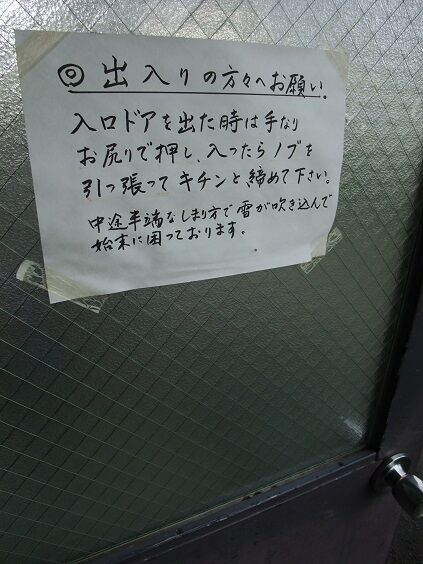 ◎出入りの方々へお願い。
入口ドアを出た時は手なり
お尻りで押し、入ったらノブを
引っ張ってキチンと締めて下さい。
中途半端なしまり方で雪が吹き込んで
始末に困っております。